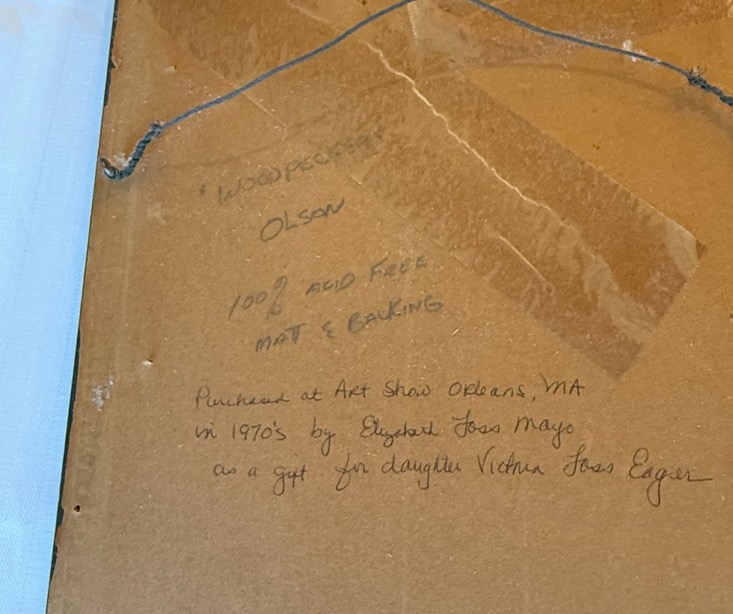 "WOODPECKERS"
OLSON
100% ACID FREE
MATT & BACKING
Purchased at Art Show Orleans, MA
in 1970's by Elizabeth Foss Mayo
as a gift for daughter Victoria Foss Eager